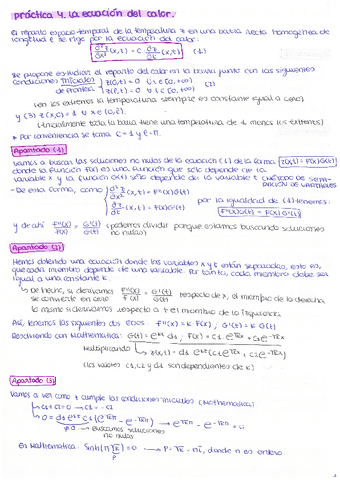 práctica 4. la ecuación del calor.
El reparto espacio-temporal de la temperatura z en una barra recta homogénea de
longitud ℓ se rige por la ecuación del calor:
∂²z/∂x² (x,t) = C ∂z/∂t (x,t) (1)
Se propone estudiar el reparto del calor en la barra junto con las siguientes
condiciones iniciales z(0,t) = 0 ∀t ∈ (0,+∞)
de frontera z(ℓ,t) = 0 ∀t ∈ (0,+∞) (2)
(en los extremos la temperatura siempre es constante igual a cero)
y (3) z(x,0) = 1 ∀x ∈ (0,ℓ).
(inicialmente toda la barra tiene una temperatura de 1 menos los extremos)
* Por conveniencia se toma C = 1 y ℓ = π.
Apartado (1)
Vamos a buscar las soluciones no nulas de la ecuación (1) de la forma z(x,t) = F(x)G(t)
donde la función F(x) es una función que sólo depende de la
variable x y la función G(t) sólo depende de la variable t (MÉTODO DE SEPA-
RACIÓN DE VARIABLES)
- De esta forma, como ∂²z/∂x² (x,t) = F''(x)G(t)
∂z/∂t (x,t) = F(x)G'(t)
por la igualdad de (1) tenemos:
F''(x)G(t) = F(x)G'(t)
y de ahí F''(x)/F(x) = G'(t)/G(t) (podemos dividir porque estamos buscando soluciones
no nulas)
Apartado (2)
Hemos obtenido una ecuación donde las variables x y t están separadas, esto es,
que cada miembro depende de una variable. Por tanto, cada miembro debe ser
igual a una constante K.
↳ De hecho, si derivamos F''(x)/F(x) = G'(t)/G(t) respecto de x, el miembro de la derecha
se convierte en cero
lo mismo si derivamos respecto a t es miembro de la izquierda
Así, tenemos las siguientes dos edos: F''(x) = K F(x) ; G'(t) = K G(t)
Resolviendo con Mathematica: G(t) = e^{Kt} d1 ; F(x) = c1 e^{√K x} + c2 e^{-√K x}
Multiplicando ↳ z(x,t) = d1 e^{Kt} (c1 e^{√K x} + c2 e^{-√K x})
(los valores c1, c2 y d1 son dependientes de K)
Apartado (3)
Vamos a ver como z cumple las condiciones iniciales (Mathematica)
↳ c1 + c2 = 0 → c1 = -c2
↳ 0 = d1 e^{Kt} c1 (e^{√K π} - e^{-√K π}) → e^{√K π} - e^{-√K π} = 0
≠ 0 → buscamos soluciones
no nulas
En Mathematica: Sinh(π√K) = 0 → P = √K = ni, donde n es entero.
P